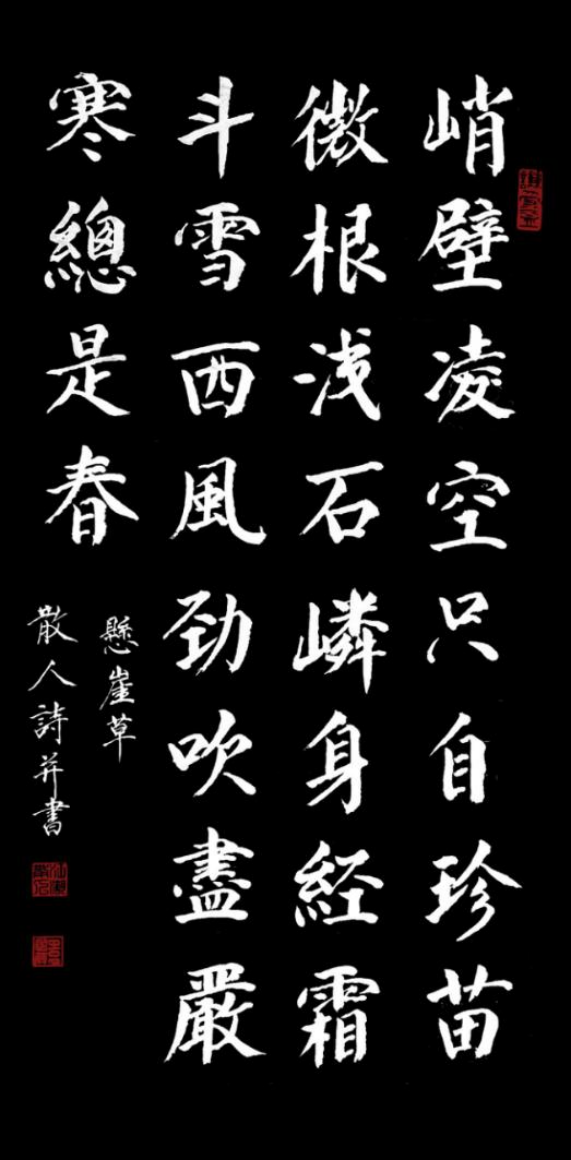 峭壁凌空只自珍苗
微根浅石嶙身経霜
斗雪西風劲吹盡嚴
寒總是春
懸崖草
散人詩并書